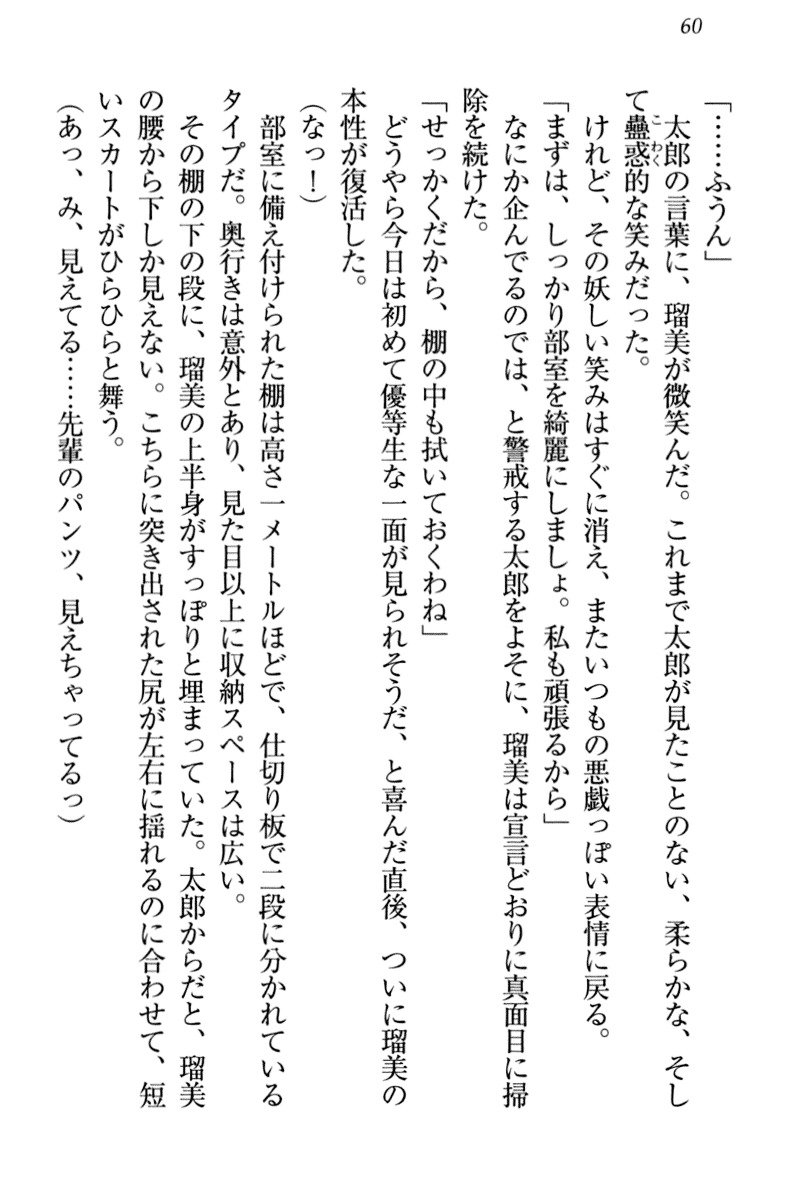 60
「……ふうん」
　太郎の言葉に、瑠美が微笑んだ。これまで太郎が見たことのない、柔らかな、そし
て蠱惑的な笑みだった。
　けれど、その妖しい笑みはすぐに消え、またいつもの悪戯っぽい表情に戻る。
「まずは、しっかり部室を綺麗にしましょ。私も頑張るから」
　なにか企んでるのでは、と警戒する太郎をよそに、瑠美は宣言どおりに真面目に掃
除を続けた。
「せっかくだから、棚の中も拭いておくわね」
　どうやら今日は初めて優等生な一面が見られそうだ、と喜んだ直後、ついに瑠美の
本性が復活した。
(なっ！)
　部室に備え付けられた棚は高さ一メートルほどで、仕切り板で二段に分かれている
タイプだ。奥行きは意外とあり、見た目以上に収納スペースは広い。
　その棚の下の段に、瑠美の上半身がすっぽりと埋まっていた。太郎からだと、瑠美
の腰から下しか見えない。こちらに突き出された尻が左右に揺れるのに合わせて、短
いスカートがひらひらと舞う。
(あっ、み、見えてる……先輩のパンツ、見えちゃってるっ)